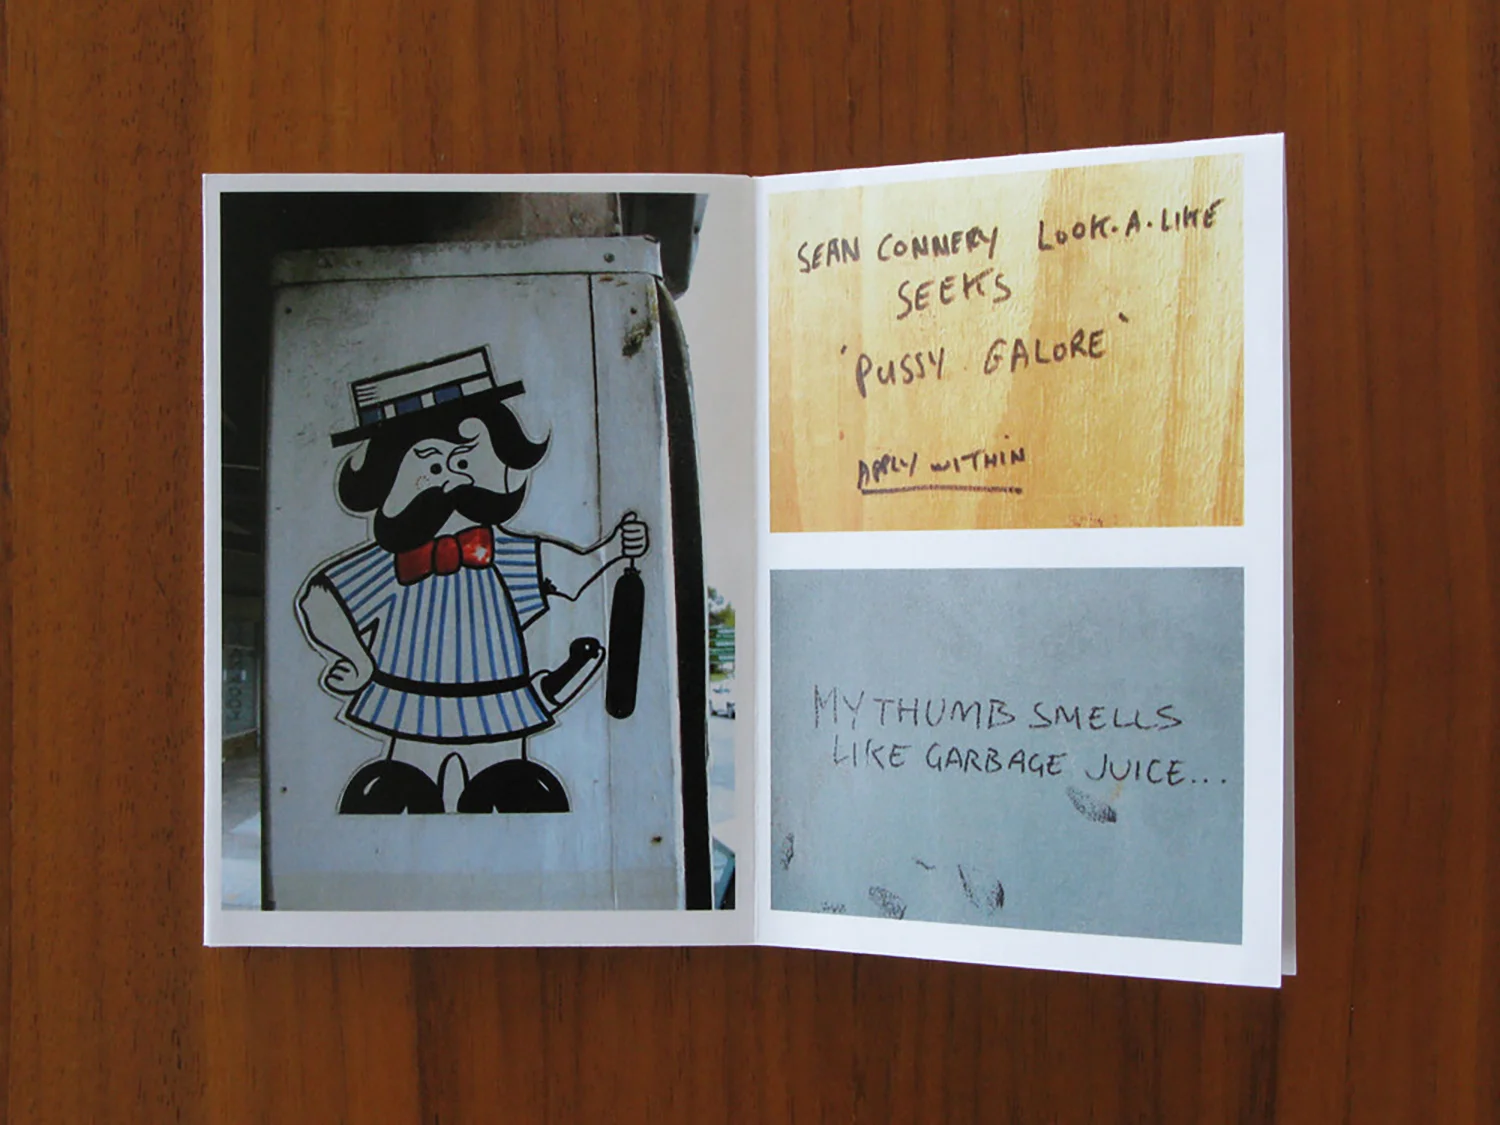 SEAN CONNERY LOOK·A·LIKE
SEEKS
'PUSSY GALORE'
APPLY WITHIN
MY THUMB SMELLS
LIKE GARBAGE JUICE...